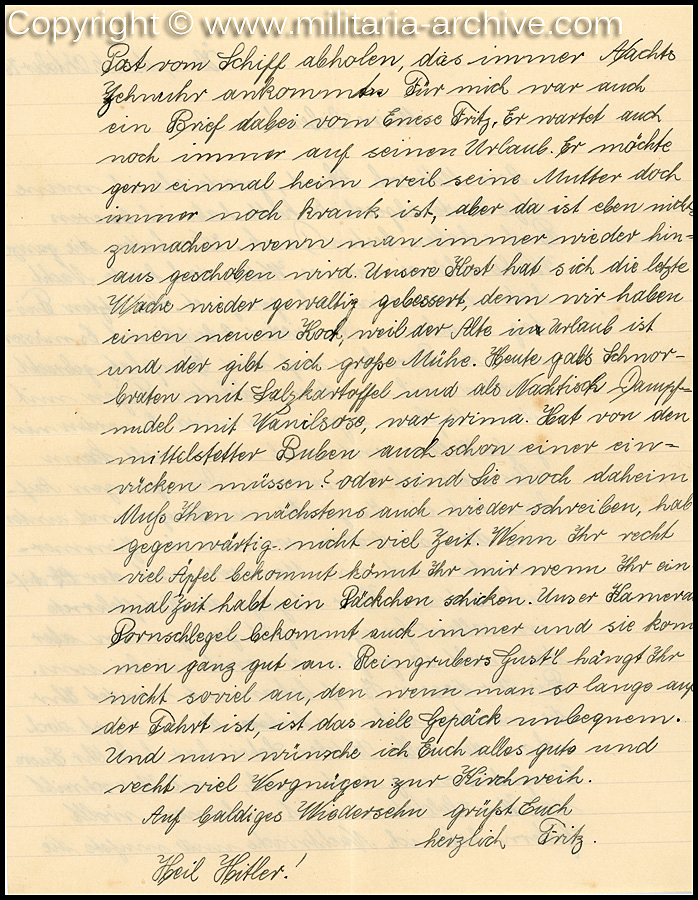 Copyright © www.militaria-archive.com
Post vom Schiff abholen, das immer Nachts
Zehnuhr ankommt. Für mich war auch
ein Brief dabei vom Enese Fritz, Er wartet auch
noch immer auf seinen Urlaub. Er möchte
gern einmal heim weil seine Mutter doch
immer noch krank ist, aber da ist eben nicht
zumachen wenn man immer wieder hin-
aus geschoben wird. Unsere Kost hat sich die letzte
Woche wieder gewaltig gebessert, denn wir haben
einen neuen Koch, weil der Alte in Urlaub ist
und der gibt sich große Mühe. Heute gabs Schnor-
braten mit Salzkartoffel und als Nachtisch Dampf-
nudel mit Vanilsose, war prima. Hat von den
mittelstetter Buben auch schon einer ein-
rücken müssen? oder sind Sie noch daheim
Muß Ihen nächstens auch wieder schreiben, hab
gegenwärtig nicht viel Zeit. Wenn Ihr recht
viel Äpfel bekommt könnt Ihr mir wenn Ihr ein
mal Zeit habt ein Päckchen schicken. Unser Kamerad
Pornschlegel bekommt auch immer und sie kom
men ganz gut an. Reingrubers Gust'l hängt Ihr
nicht soviel an, den wenn man so lange auf
der Fahrt ist, ist das viele Gepäck unbequem.
Und nun wünsche ich Euch alles gute und
recht viel Vergnügen zur Kirchweih.
Auf baldiges Wiedersehn grüßt Euch
herzlich Fritz.
Heil Hitler!